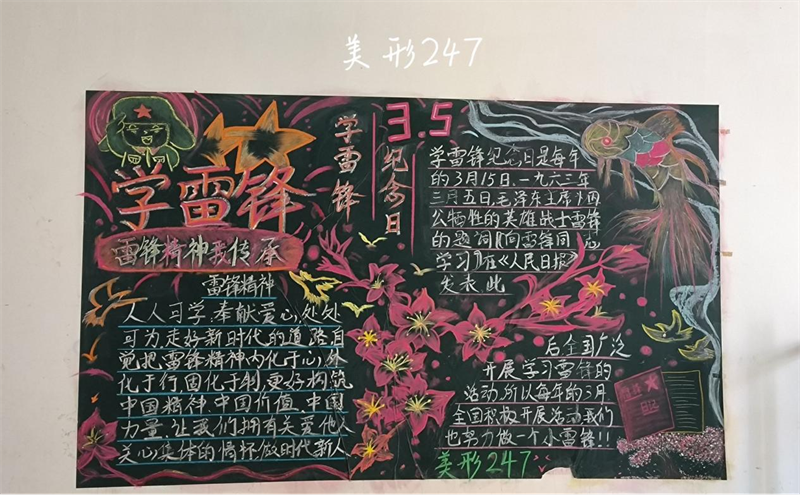 美形247
学雷锋
雷锋精神我传承
雷锋精神
人人习学奉献爱心,处处
可为走好新时代的道路自
觉把雷锋精神内化于心,外
化于行固化于制,更好构筑
中国精神、中国价值、中国
力量,让我们拥有关爱他人
关心集体的情怀做时代新人
学雷锋
3.5
纪念日
学雷锋纪念日是每年
的3月15日、一九六三年
三月五日,毛泽东主席为因
公牺牲的英雄战士雷锋
的题词《向雷锋同志
学习》在《人民日报》
发表此
后全国广泛
开展学习雷锋的
活动,所以每年的3月
全国积极开展活动我们
也努力做一个小雷锋!!
美形247